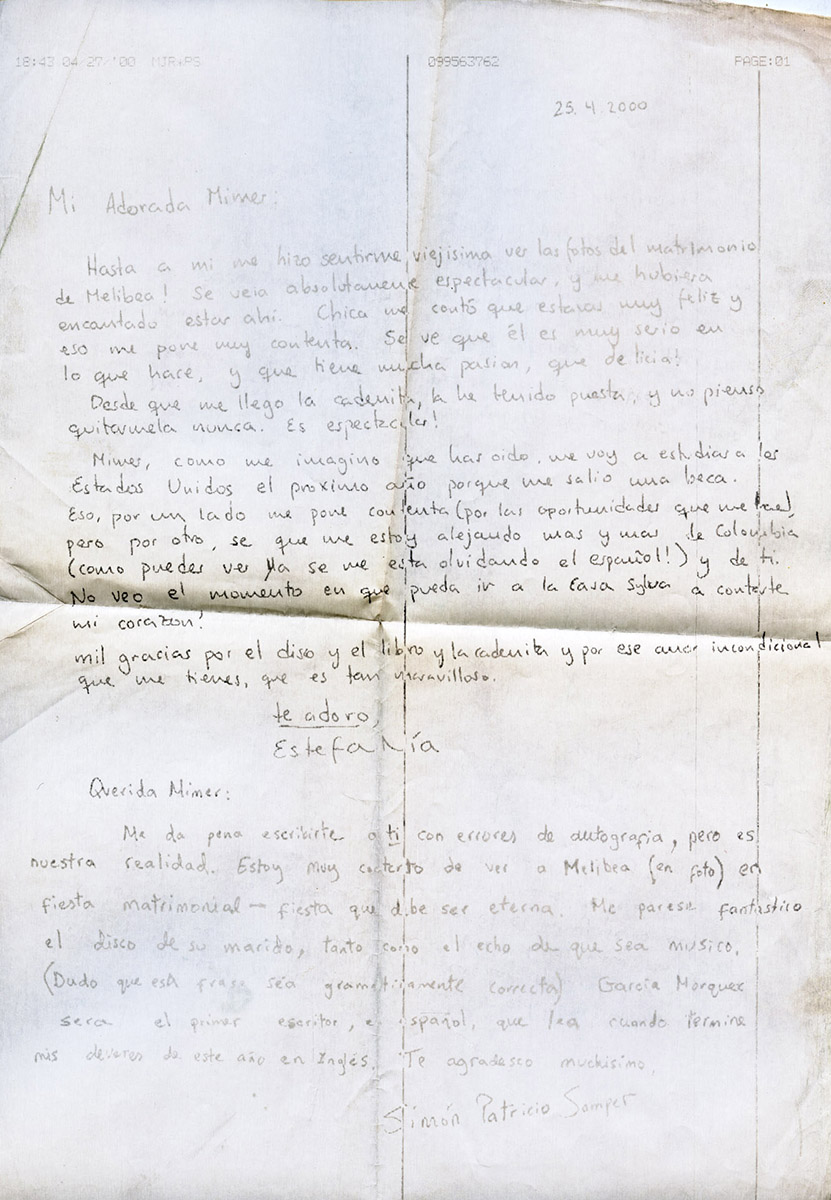 18:43 04/27/'00 MJR+PS 099563762 PAGE:01
25.4.2000
Mi Adorada Mimer:
Hasta a mi me hizo sentirme viejisima ver las fotos del matrimonio
de Melibea! Se veia absolutamente espectacular, y me hubiera
encantado estar ahí. Chica me contó que estaras muy feliz y
eso me pone muy contenta. Se ve que él es muy serio en
lo que hace, y que tiene mucha pasion, que delicia!
Desde que me llego la cadenita, la he tenido puesta, y no pienso
quitarmela nunca. Es espectacular!
Mimer, como me imagino que has oido, me voy a estudiar a los
Estados Unidos el proximo año porque me salio una beca.
Eso, por un lado me pone contenta (por las oportunidades que me trae),
pero por otro, se que me estoy alejando mas y mas de Colombia
(como puedes ver ya se me esta olvidando el español!) y de ti.
No veo el momento en que pueda ir a la Casa Sylva a contarte
mi corazon!
mil gracias por el disco y el libro y la cadenita y por ese amor incondicional
que me tienes, que es tan maravilloso.
te adoro,
Estefanía
Querida Mimer:
Me da pena escribirte a ti con errores de autografia, pero es
nuestra realidad. Estoy muy contento de ver a Melibea (en foto) en
fiesta matrimonial — fiesta que debe ser eterna. Me parese fantastico
el disco de su marido, tanto como el echo de que sea musico.
(Dudo que esta frase sea gramaticamente correcta) García Marquez
sera el primer escritor, en español, que lea cuando termine
mis deveres de este año en Inglés. Te agradesco muchisimo,
Simón Patricio Samper